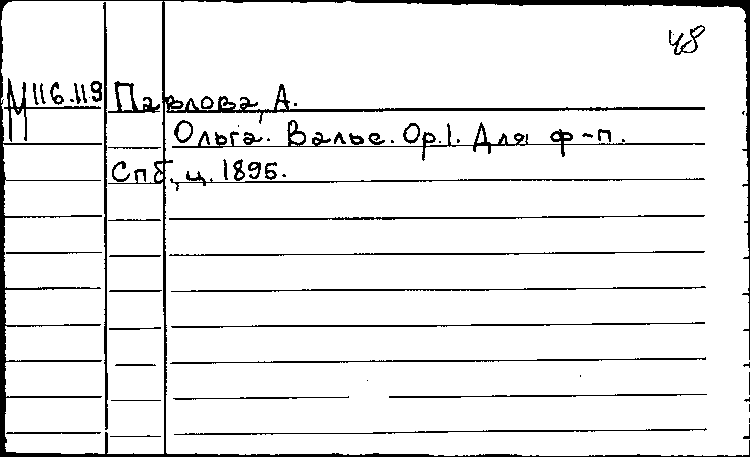 48
М 116.119 Павлова, А.
Ольга. Вальс. Op.1. Для ф-п.
Спб., ц. 1895.